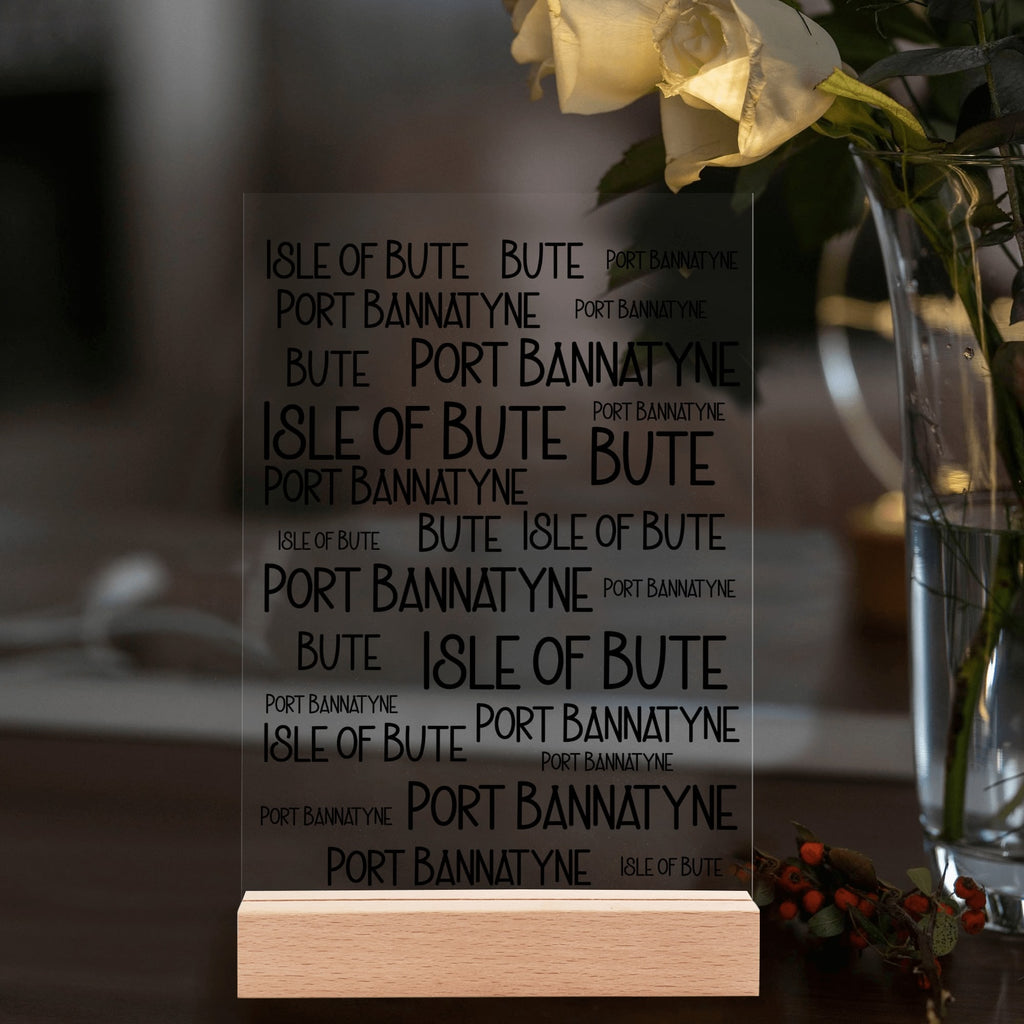 Isle of Bute Bute Port Bannatyne
Port Bannatyne Port Bannatyne
Bute Port Bannatyne
Isle of Bute Port Bannatyne
Bute
Port Bannatyne
Isle of Bute Bute Isle of Bute
Port Bannatyne Port Bannatyne
Bute Isle of Bute
Port Bannatyne
Isle of Bute Port Bannatyne
Port Bannatyne
Port Bannatyne Port Bannatyne
Port Bannatyne Isle of Bute